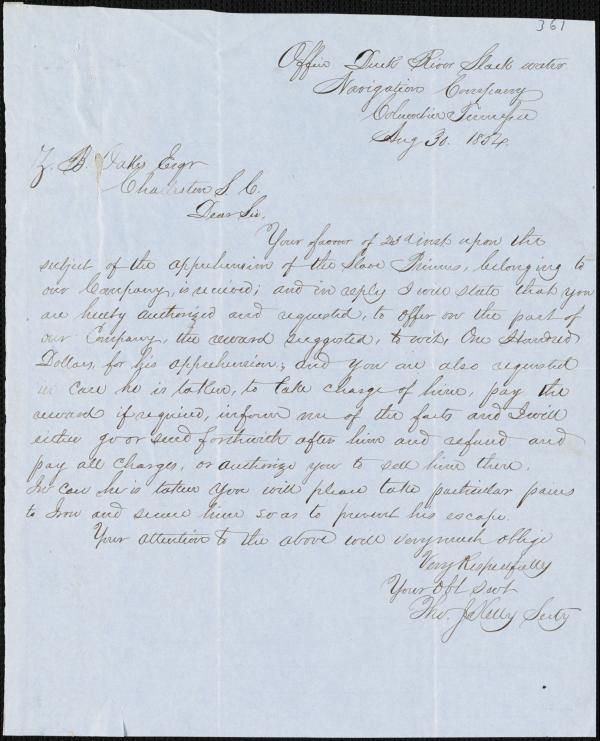 361
Office Duck River Slack water
Navigation Company
Columbia Tennessee
Aug 30. 1854.
Z. B. Oakes Esqr
Charleston S. C.
Dear Sir,
Your favour of 23d inst upon the
subject of the apprehension of the Slave Primus, belonging to
our Company, is received; and in reply I will state that you
are hereby authorized and requested, to offer on the part of
our Company, the reward suggested, to wit, One Hundred
Dollars, for his apprehension; and you are also requested
in case he is taken, to take charge of him, pay the
reward if required, inform me of the facts and I will
either go or send forthwith after him and refund and
pay all charges, or authorize you to sell him there.
In case he is taken you will please take particular pains
to Iron and secure him so as to prevent his escape.
Your attention to the above will very much oblige
Very Respectfully
Your Obt Servt
Tho. J. Kelly Secty